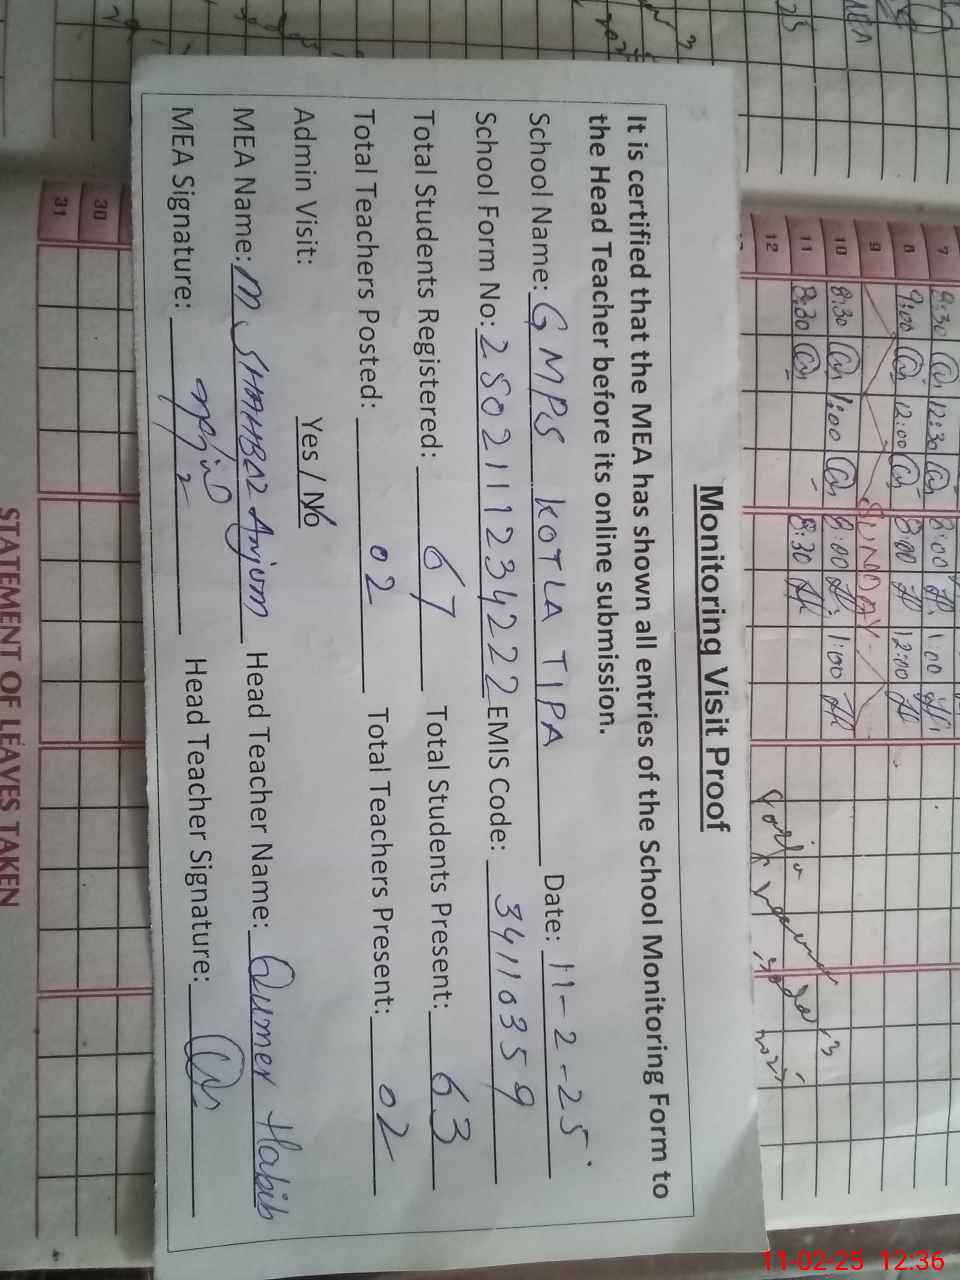 Monitoring Visit Proof
It is certified that the MEA has shown all entries of the School Monitoring Form to
the Head Teacher before its online submission.
School Name: GMPS KOTLA TIPA Date: 11-2-25
School Form No: 2502111234222 EMIS Code: 34110359
Total Students Registered: 67 Total Students Present: 63
Total Teachers Posted: 02 Total Teachers Present: 02
Admin Visit: Yes / No
MEA Name: M SHAHBAZ Anjum Head Teacher Name: Qumer Habib
MEA Signature: Head Teacher Signature:
7 9:30 12:30 8:00 1:00
8 9:00 12:00 8:00 12:00
9 SUNDAY
10 8:30 1:00 8:00 1:00
11 8:30 8:30
12
30
31
STATEMENT OF LEAVES TAKEN
11-02-25 12:36